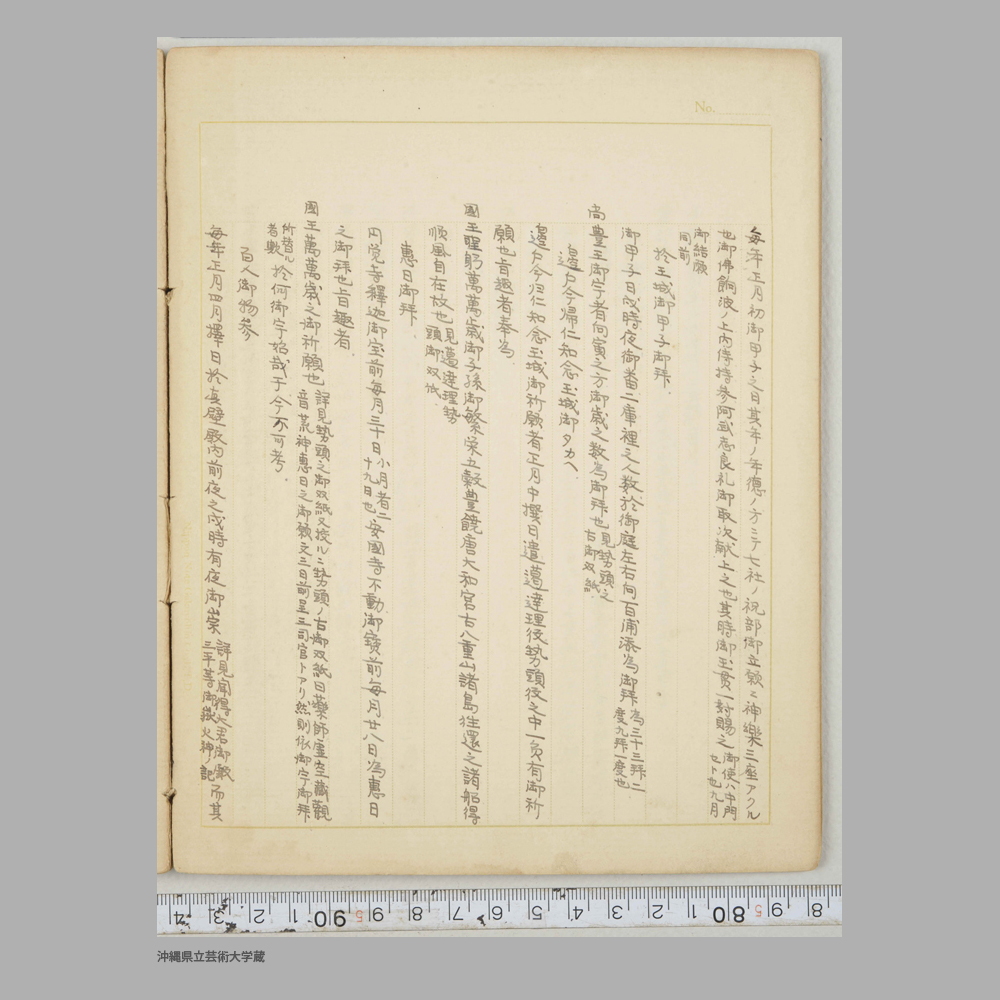 No.
毎年正月初御甲子之日其年ノ年德ノ方ニテ七社ノ祝部御立願ニ神樂三座アクル
也御佛餉波ノ上内侍持参阿武志良礼御取次献上之也其時御玉貫一対賜之 御使ハ今門セト也九月
御結願同前
於王城御甲子御拜
御甲子日戌時夜御番二庫裡之人数於御庭左右向百甫添為御拜 為三十三拜二度九拜一度也
尚豊王御字者向寅之方御歳之数為御拜也 見勢頭之右御双紙
邊戸今帰仁知念玉城御タカヘ
邊戸今归仁知念玉城御祈願者正月中撰日遣邉達理役勢頭役之中一負有御祈
願也旨趣者奉為
國王聖躬萬萬歳御子孫御繁栄五穀豊饒唐大和宮古八重山諸島往還之諸船得
順風自在故也 見邉達理勢頭御双帋
惠日御拜
円覚寺釋迦御宝前毎月三十日 小月者二十九日也 安國寺不動御寶前毎月廿八日為惠日
之御拜也旨趣者
國王萬萬歳之御祈願也 詳見勢頭之御双紙又按ルニ勢頭ノ古御双紙曰藥師虚空藏觀音荒神惠日之御願文三日前呈三司官トアリ然則依御字御拜
所替ル者歟 於何御字始哉于今不可考
百人御物参
毎年正月四月擇日於真壁殿内前夜之戌時有夜御崇 詳見聞得大君御殿三平等御嶽火神ノ記 而其
沖縄県立芸術大学蔵